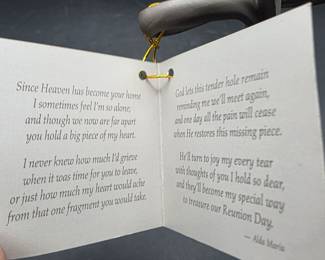 Since Heaven has become your home
I sometimes feel I'm so alone;
and though we now are far apart
you hold a big piece of my heart.
I never knew how much I'd grieve
when it was time for you to leave,
or just how much my heart would ache
from that one fragment you would take.
God lets this tender hole remain
reminding me we'll meet again,
and one day all the pain will cease
when He restores this missing piece.
He'll turn to joy my every tear
with thoughts of you I hold so dear,
and they'll become my special way
to treasure our Reunion Day.
— Alda Maria